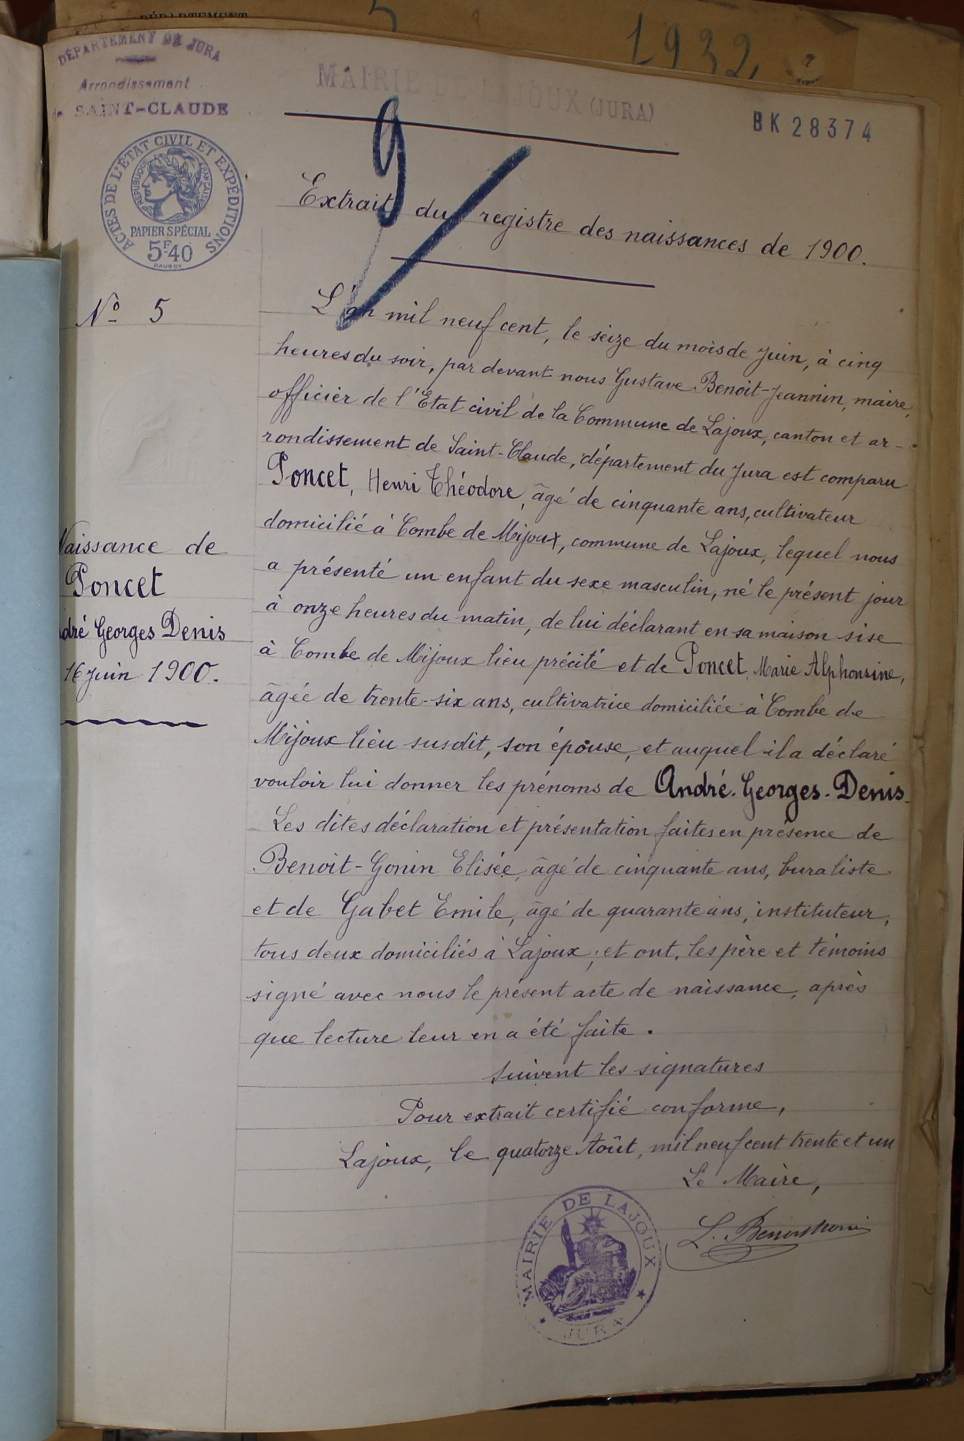 1932
DÉPARTEMENT DU JURA
Arrondissement
SAINT-CLAUDE
MAIRIE DE LAJOUX (JURA)
BK 28374
9
ACTES DE L'ÉTAT CIVIL ET EXPÉDITIONS
RÉPUBLIQUE FRANÇAISE
PAPIER SPÉCIAL
5F.40
Extrait du registre des naissances de 1900.
No 5
Naissance de
Poncet
André Georges Denis
16 Juin 1900.
L'an mil neuf cent, le seize du mois de Juin, à cinq
heures du soir, par devant nous Gustave Benoit-Jeannin, maire,
officier de l'Etat civil de la Commune de Lajoux, canton et ar-
rondissement de Saint-Claude, département du Jura est comparu
Poncet, Henri Théodore, âgé de cinquante ans, cultivateur
domicilié à Combe de Mijoux, commune de Lajoux, lequel nous
a présenté un enfant du sexe masculin, né le présent jour
à onze heures du matin, de lui déclarant en sa maison sise
à Combe de Mijoux lieu précité et de Poncet, Marie Alphonsine,
âgée de trente-six ans, cultivatrice domiciliée à Combe de
Mijoux lieu susdit, son épouse, et auquel il a déclaré
vouloir lui donner les prénoms de André. Georges. Denis.
Les dites déclaration et présentation faites en présence de
Benoit-Gonin Elisée, âgé de cinquante ans, buraliste
et de Gabet Emile, âgé de quarante ans, instituteur,
tous deux domiciliés à Lajoux; et ont, les père et témoins
signé avec nous le présent acte de naissance, après
que lecture leur en a été faite.
Suivent les signatures
Pour extrait certifié conforme,
Lajoux, le quatorze Août, mil neuf cent trente et un
Le Maire,
MAIRIE DE LAJOUX
JURA